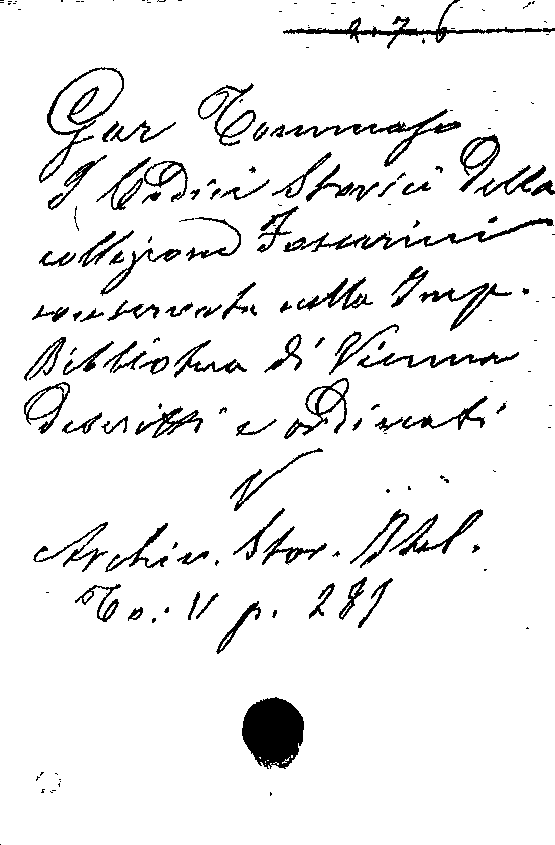 2.7.6
Gar Tommaso
I Codici Storici della
collezione Foscarini
conservata nella Imp.
Biblioteca di Vienna
descritti e ordinati
V
Archiv. Stor. Ital.
To: V p. 281